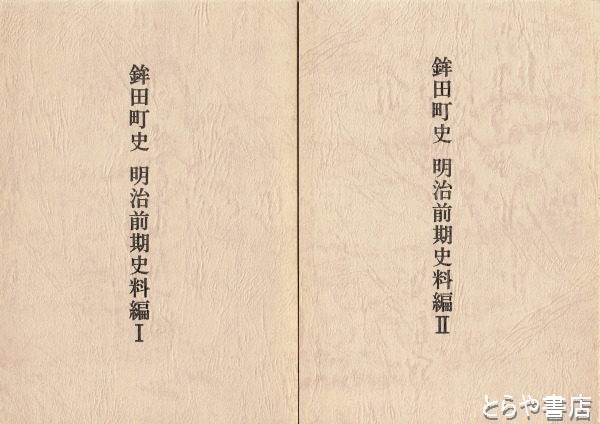 鉾田町史 明治前期史料編Ⅰ
鉾田町史 明治前期史料編Ⅱ
とらや書店